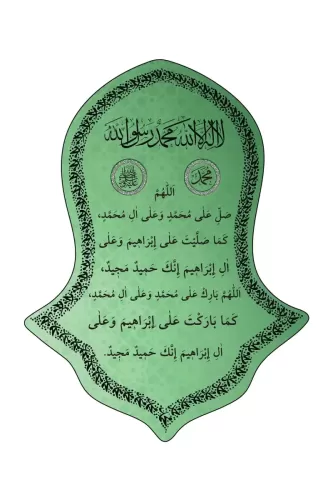 لا اله الا الله محمد رسول الله
محمد
اَللّٰهُمَّ
صَلِّ عَلٰى مُحَمَّدٍ وَعَلٰى اٰلِ مُحَمَّدٍ،
كَمَا صَلَّيْتَ عَلٰى اِبْرَاهِيمَ وَعَلٰى
اٰلِ اِبْرَاهِيمَ اِنَّكَ حَمِيدٌ مَجِيدٌ،
اَللّٰهُمَّ بَارِكْ عَلٰى مُحَمَّدٍ وَعَلٰى اٰلِ مُحَمَّدٍ،
كَمَا بَارَكْتَ عَلٰى اِبْرَاهِيمَ وَعَلٰى
اٰلِ اِبْرَاهِيمَ اِنَّكَ حَمِيدٌ مَجِيدٌ.